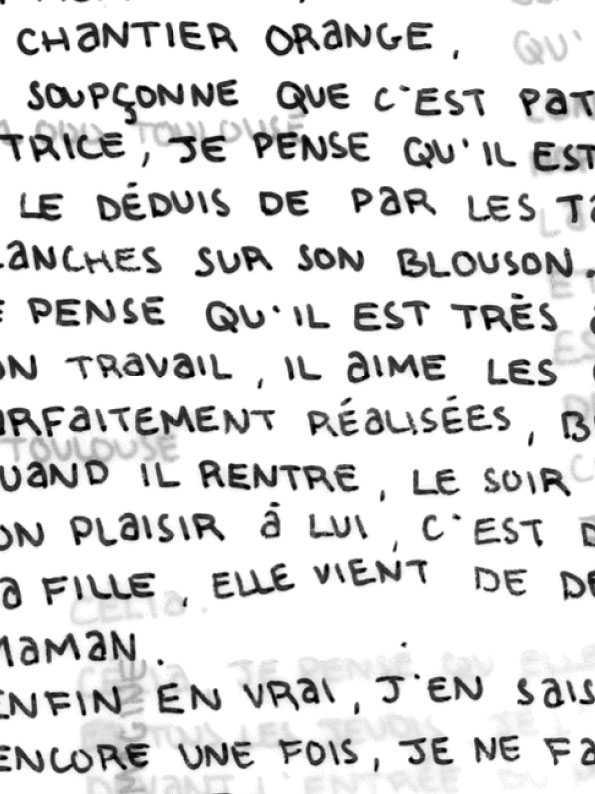 CHANTIER ORANGE,
SOUPÇONNE QUE C'EST PAT
TRICE, JE PENSE QU'IL EST
LE DÉDUIS DE PAR LES TA
LANCHES SUR SON BLOUSON.
E PENSE QU'IL EST TRÈS
ON TRAVAIL, IL AIME LES
ARFAITEMENT RÉALISÉES, B
UAND IL RENTRE, LE SOIR
ON PLAISIR À LUI, C'EST D
A FILLE, ELLE VIENT DE DE
MAMAN.
ENFIN EN VRAI, J'EN SAIS
ENCORE UNE FOIS, JE NE FA